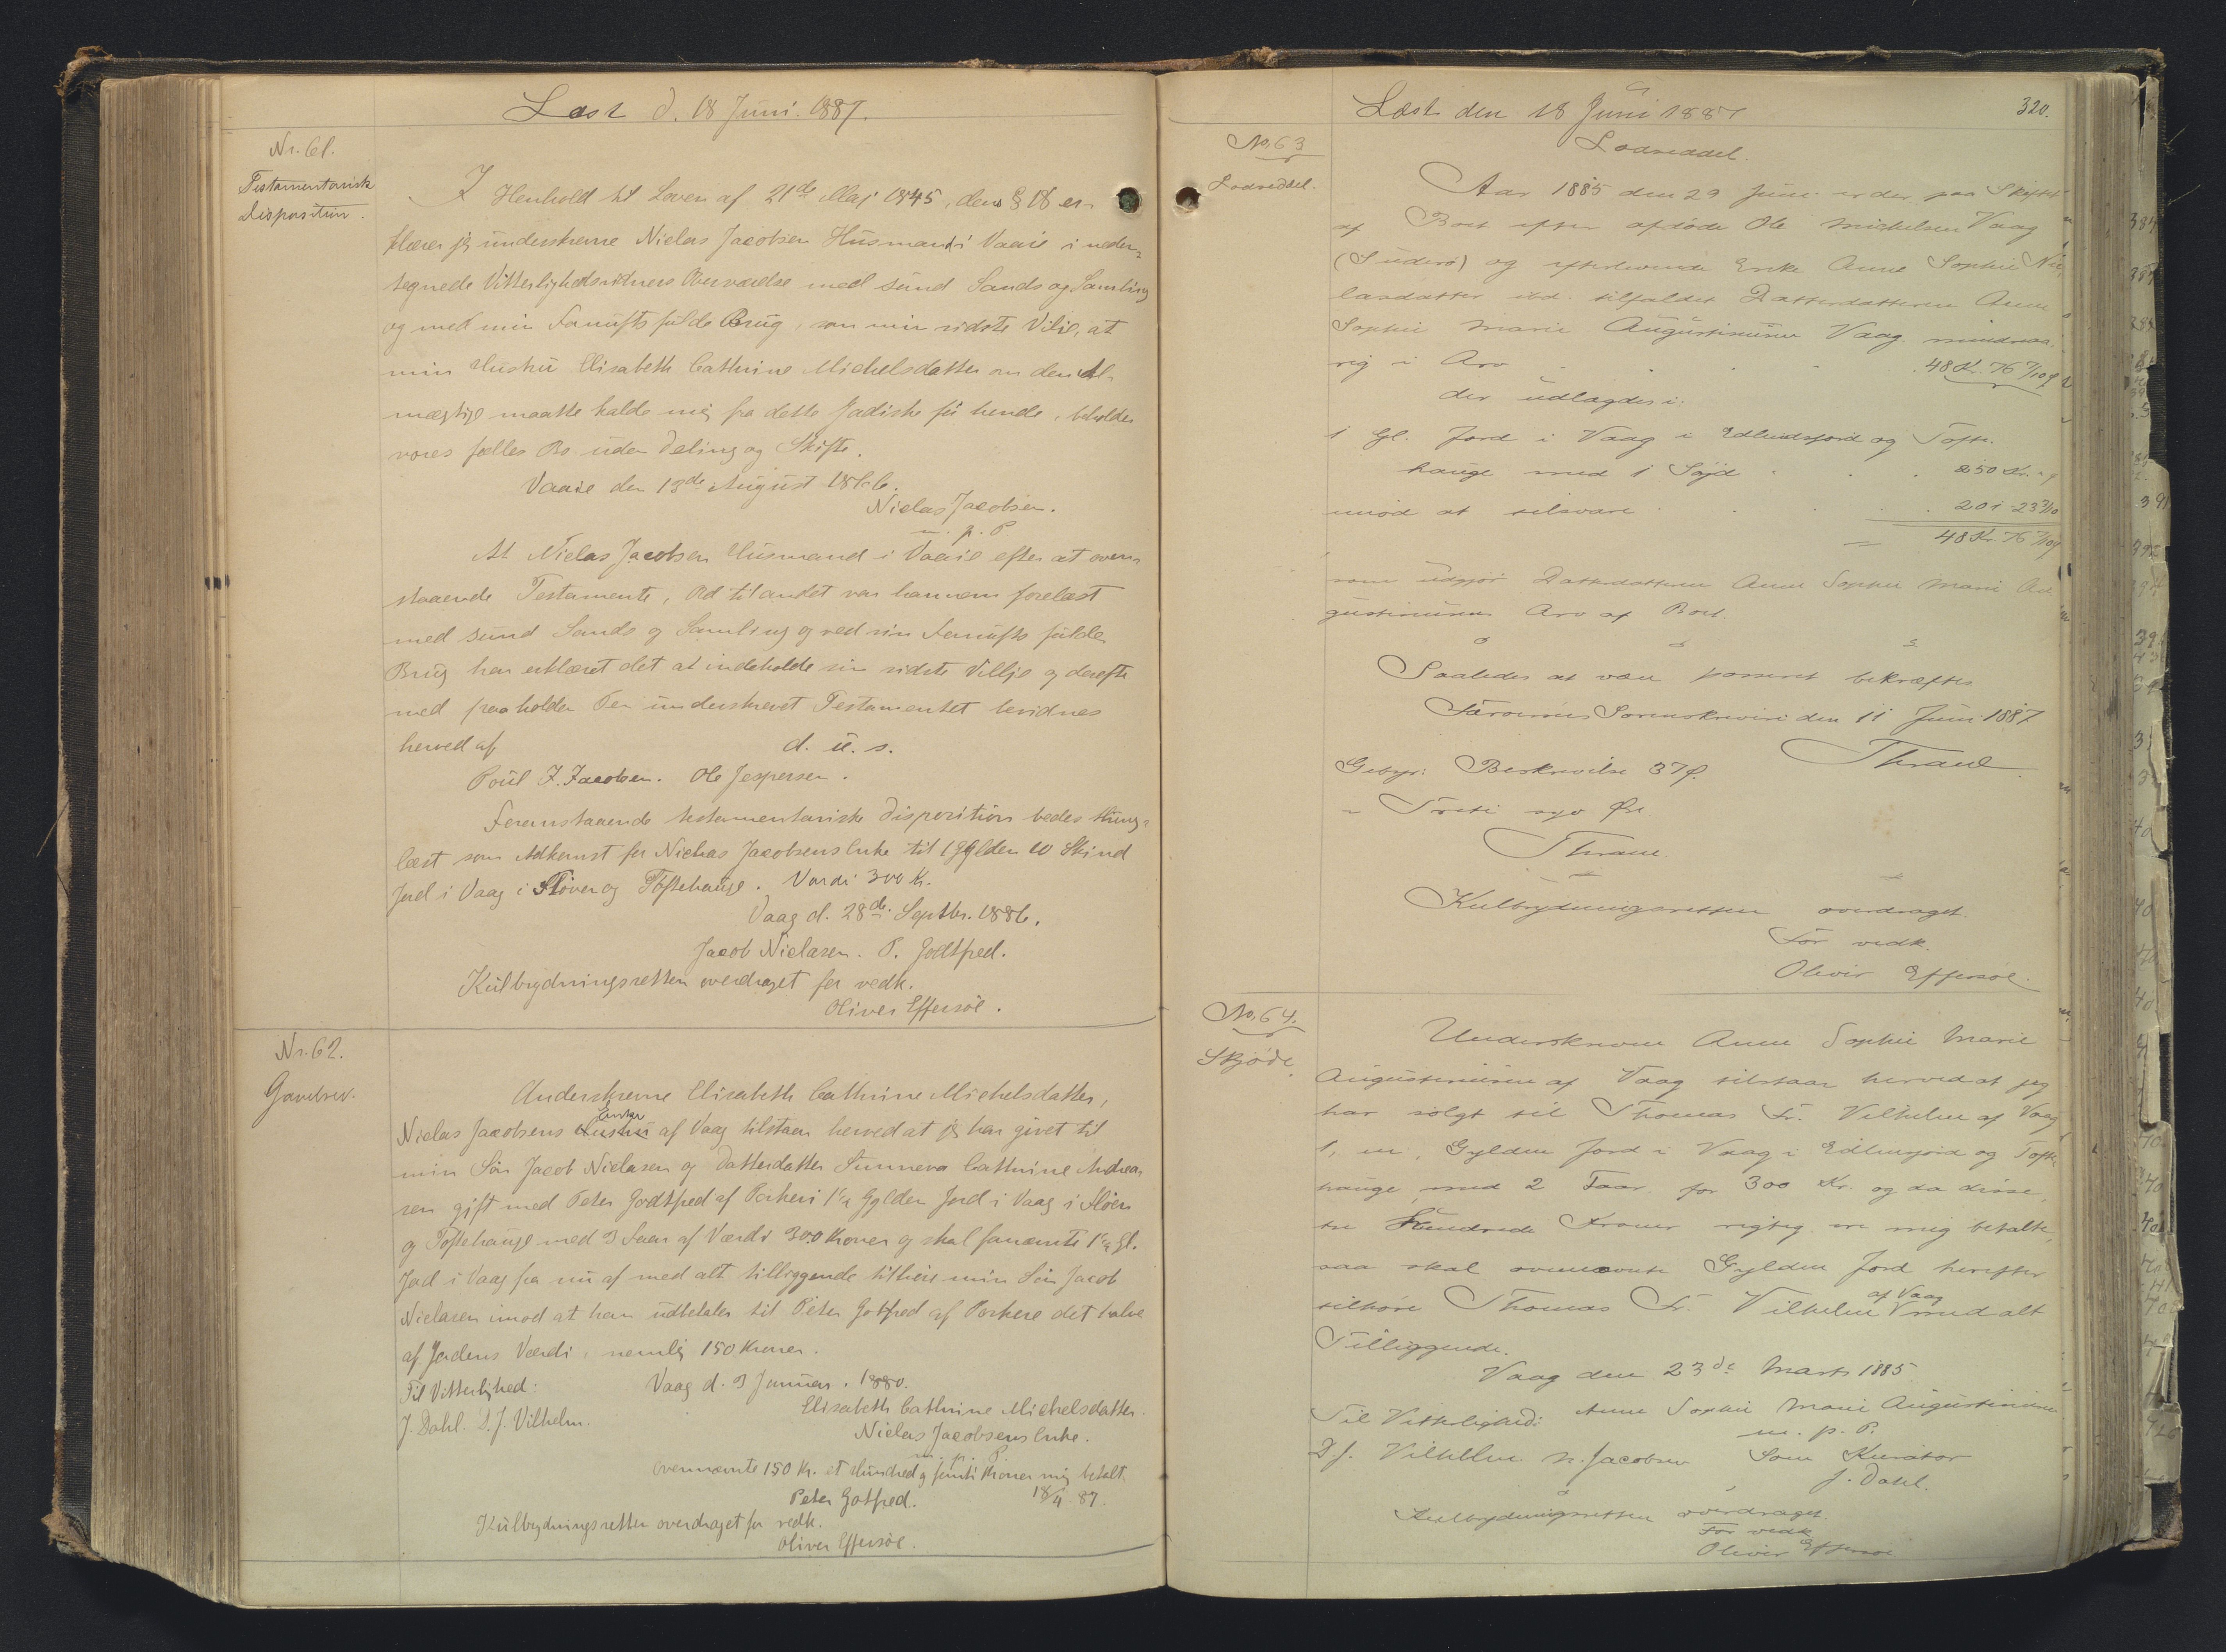 Læst d. 18 Juni 1887.
Nr. 61.
Testamentarisk
Disposition.
I Henhold til Loven af 21de Maj 1845, dens § 18 er-
klærer jeg underskrevne Nielas Jacobsen Husmand i Vaaie i neder-
tegnede Vitterlighedsvidners Overværelse med sund Sands og Samling
og med min Fornufts fulde Brug, som min sidste Vilie, at
min Hustru Elisabeth Cathrine Michelsdatter om den Al-
mægtige maatte kalde mig fra dette Jordiske før hende, beholder
vores fælles Bo uden Deling og Skifte.
Vaaie den 13de August 1866.
Nielas Jacobsen.
m. p. P.
At Nielas Jacobsen Husmand i Vaaie efter at oven-
staaende Testamente, Ord til andet var hannem forelæst
med sund Sands og Samling og ved sin Fornufts fulde
Brug har erklæret det at indeholde sin sidste Villje og derefter
med paaholden Pen underskrevet Testamentet bevidnes
herved af d. u. s.
Poul J. Jacobsen. Ole Jespersen.
Foranstaaende testamentariske Disposition bedes thing-
læst som Adkomst for Nielas Jacobsens Enke til 1 Gylden 10 Skind
Jord i Vaag i Fløven og Toftehauge. Værdi 300 Kr.
Vaag d. 28de Septbr. 1886.
Jacob Nielasen. P. Godtfred.
Kulbrydningsretten overdraget for vedk.
Oliver Effersøe.
Nr. 62.
Gavebrev.
Underskrevne Elisabeth Cathrine Michelsdatter,
Enke
Nielas Jacobsens Hustru af Vaag tilstaar herved at jeg har givet til
min Søn Jacob Nielasen og Datterdatter Sunneva Cathrine Andrea-
sen gift med Peter Godtfred af Porkeri 1½ Gylden Jord i Vaag i Fløen
og Toftehauge med 3 Faar af Værdi 300 Kroner og skal fornævnte 1½ Gl.
Jord i Vaag fra nu af med alt tilliggende tilhøre min Søn Jacob
Nielasen imod at han udbetaler til Peter Gotfred af Porkere det halve
af Jordens Værdi, nemlig 150 Kroner.
Til Vitterlighed: Vaag d. 3 Januar. 1880.
J. Dahl. D. J. Vilhelm. Elisabeth Cathrine Michelsdatter.
Nielas Jacobsens Enke.
m. p. P.
Ovennævnte 150 Kr. et Hundred og femti Kroner mig betalt
Peter Gotfred. 18/4 87.
Kulbrydningsretten overdraget for vedk.
Oliver Effersøe.
Læst den 18 Juni 1887
320.
No. 63
Lodseddel.
Lodseddel.
Aar 1885 den 29 Juni er der paa Skiftet
af Boet efter afdøde Ole Michelsen Vaag
(Suderø) og efterlevende Enke Anne Sophie Nie-
lasdatter ibd. tilfaldet Datterdatteren Anne
Sophie Marie Augustinusen Vaag mindreaa-
rig i Arv 48 Kr. 76 7/10 ø
der udlagdes i:
1 Gl. Jord i Vaag i Edlunsfjord og Tofte-
hauge med 1 Søjd 250 Kr. "
imod at tilsvare 201 23 3/10
48 Kr. 76 7/10 ø
som udgjør Datterdatteren Anne Sophie Marie Au-
gustinusens Arv af Boet.
Saaledes at være passeret bekræftes
Færøernes Sorenskriveri den 11 Juni 1887
Thrane
Gebyr: Beskrivelse 37 ø.
Treti syv Øre
Thrane.
Kulbrydningsretten overdraget.
For vedk.
Oliver Effersøe.
No. 64.
Skjøde
Underskrevne Anne Sophie Marie
Augustinusen af Vaag tilstaar herved at jeg
har solgt til Thomas Fr. Vilhelm af Vaag
1, en, Gylden Jord i Vaag i Edlunsfjord og Tofte-
hauge med 2 Faar for 300 Kr. og da disse,
tre Hundrede Kroner rigtig ere mig betalte,
saa skal ovennævnte Gylden Jord herefter
af Vaag
tilhøre Thomas Fr. Vilhelm med alt
Tilliggende.
Vaag den 23de Marts 1885
Til Vitterlighed: Anne Sophie Marie Augustinusen
m. p. P.
D. J. Vilhelm. N. Jacobsen Som Kurator
J. Dahl.
Kulbrydningsretten overdraget.
For vedk
Oliver Effersøe